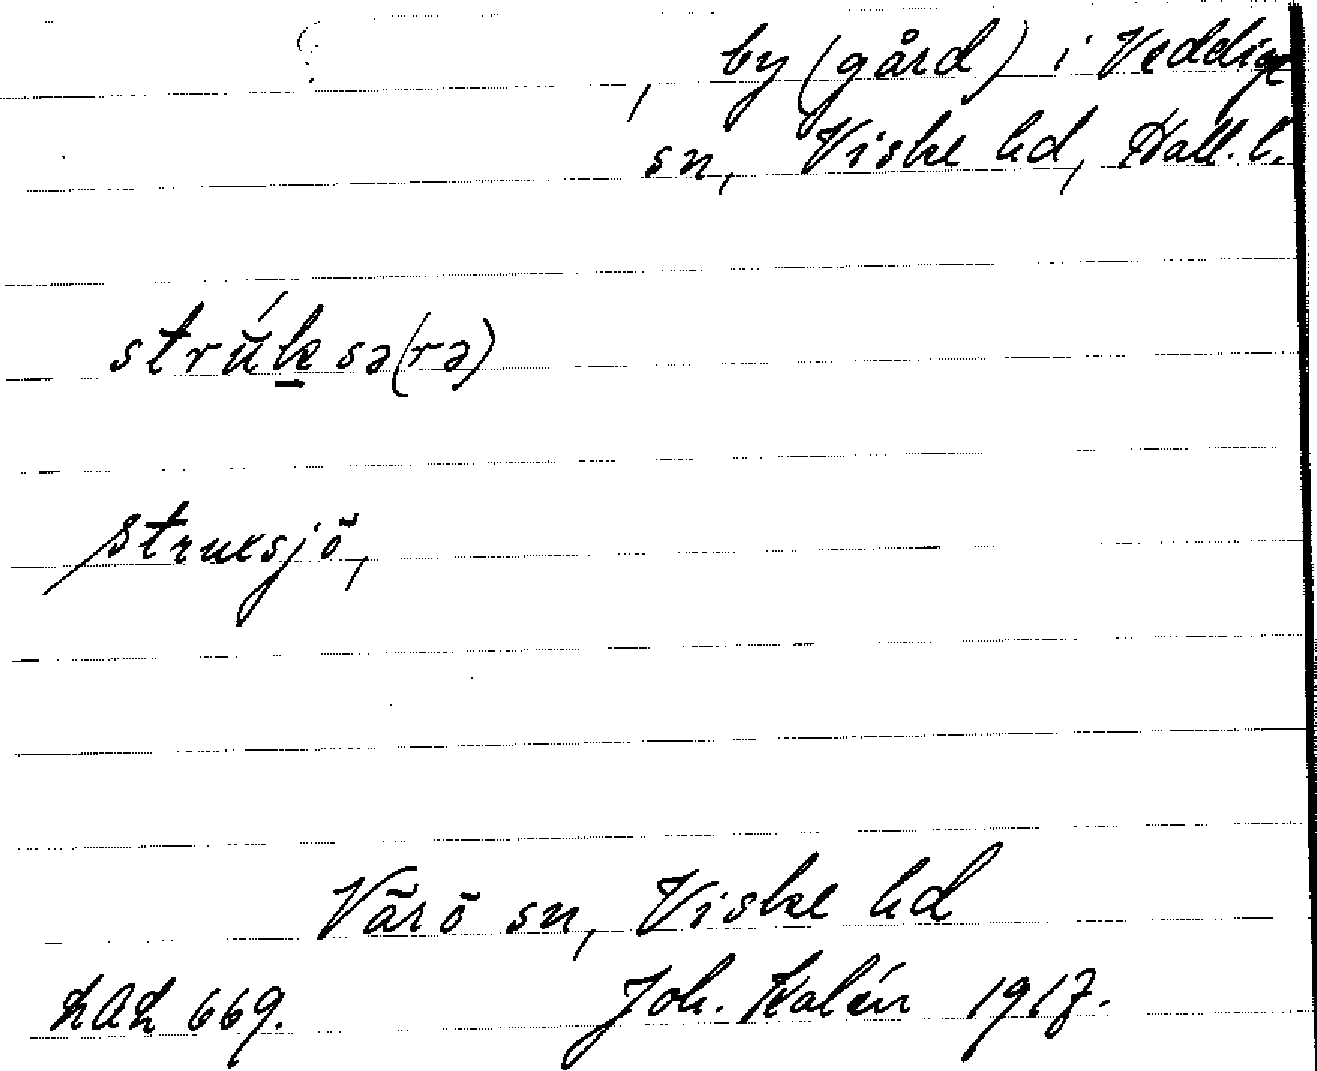 , by (gård) i Veddige
sn, Viske hd, Hall. l.
strúksə(rə)
struksjö,
Värö sn, Viske hd
LAL 669. Joh. Kalén 1917.